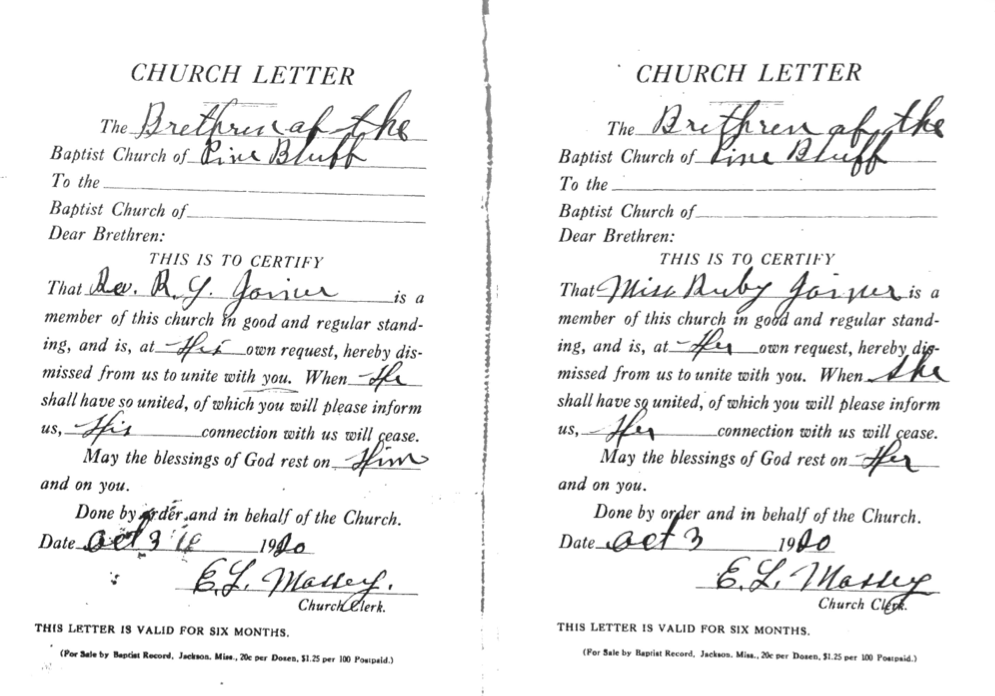 CHURCH LETTER
The Brethren of the
Baptist Church of Pine Bluff
To the
Baptist Church of
Dear Brethren:
THIS IS TO CERTIFY
That Rev. R. Y. Joiner is a
member of this church in good and regular stand-
ing, and is, at His own request, hereby dis-
missed from us to unite with you. When He
shall have so united, of which you will please inform
us, His connection with us will cease.
May the blessings of God rest on Him
and on you.
Done by order and in behalf of the Church.
Date Oct 3 1920
E. L. Massey.
Church Clerk.
THIS LETTER IS VALID FOR SIX MONTHS.
(For Sale by Baptist Record, Jackson, Miss., 20c per Dozen, $1.25 per 100 Postpaid.)
CHURCH LETTER
The Brethren of the
Baptist Church of Pine Bluff
To the
Baptist Church of
Dear Brethren:
THIS IS TO CERTIFY
That Miss Ruby Joiner is a
member of this church in good and regular stand-
ing, and is, at Her own request, hereby dis-
missed from us to unite with you. When she
shall have so united, of which you will please inform
us, Her connection with us will cease.
May the blessings of God rest on Her
and on you.
Done by order and in behalf of the Church.
Date Oct 3 1920
E. L. Massey
Church Clerk.
THIS LETTER IS VALID FOR SIX MONTHS.
(For Sale by Baptist Record, Jackson, Miss., 20c per Dozen, $1.25 per 100 Postpaid.)